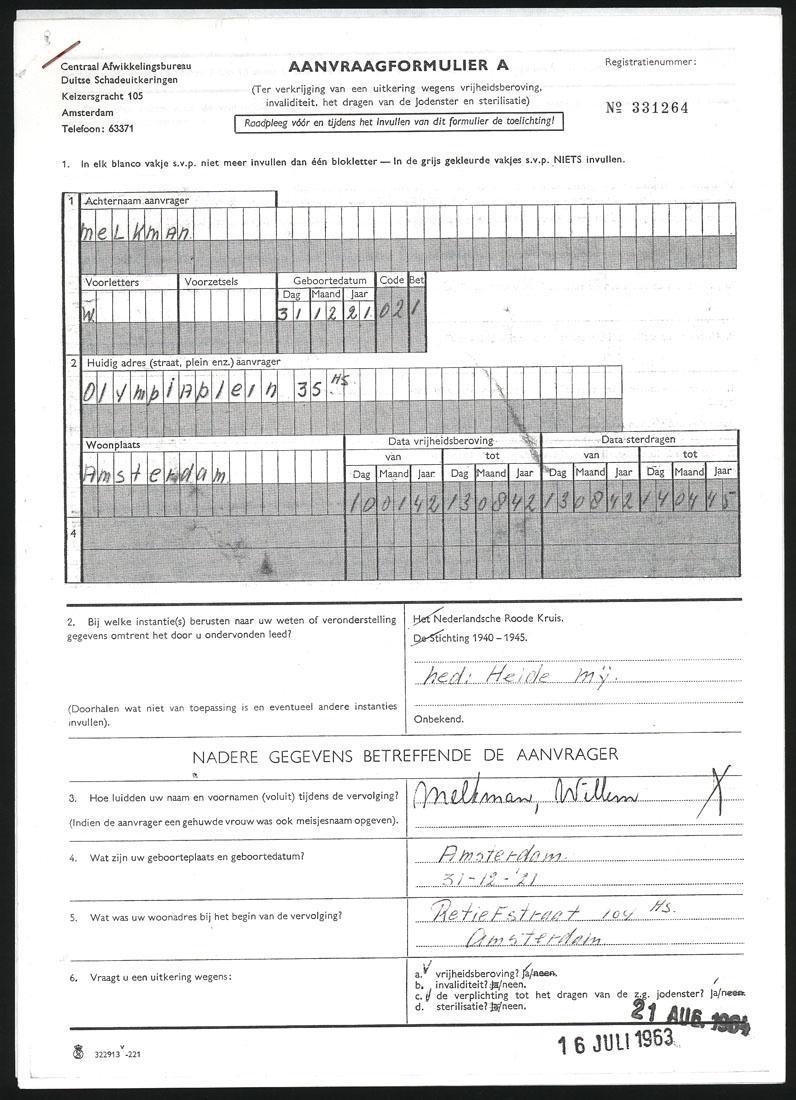 Centraal Afwikkelingsbureau
Duitse Schadeuitkeringen
Keizersgracht 105
Amsterdam
Telefoon: 63371
AANVRAAGFORMULIER A
(Ter verkrijging van een uitkering wegens vrijheidsberoving,
invaliditeit, het dragen van de Jodenster en sterilisatie)
Raadpleeg vóór en tijdens het invullen van dit formulier de toelichting!
Registratienummer:
Nº 331264
1. In elk blanco vakje s.v.p. niet meer invullen dan één blokletter — In de grijs gekleurde vakjes s.v.p. NIETS invullen.
1 Achternaam aanvrager
MeLKmAn
Voorletters Voorzetsels Geboortedatum Code Bet
Dag Maand Jaar
W 31 12 21 02 1
2 Huidig adres (straat, plein enz.) aanvrager
OlympiAplein 35 HS
Woonplaats Data vrijheidsberoving Data sterdragen
van tot van tot
Dag Maand Jaar Dag Maand Jaar Dag Maand Jaar Dag Maand Jaar
Amsterdam
10 01 42 13 08 42 13 08 42 14 04 45
4
2. Bij welke instantie(s) berusten naar uw weten of veronderstelling
gegevens omtrent het door u ondervonden leed?
(Doorhalen wat niet van toepassing is en eventueel andere instanties
invullen).
Het Nederlandsche Roode Kruis.
De Stichting 1940 – 1945.
ned: Heide mÿ.
Onbekend.
NADERE GEGEVENS BETREFFENDE DE AANVRAGER
3. Hoe luidden uw naam en voornamen (voluit) tijdens de vervolging?
(Indien de aanvrager een gehuwde vrouw was ook meisjesnaam opgeven).
Melkman, Willem X
4. Wat zijn uw geboorteplaats en geboortedatum?
Amsterdam.
31-12-'21
5. Wat was uw woonadres bij het begin van de vervolging?
Retiefstraat 104 HS.
Amsterdam
6. Vraagt u een uitkering wegens:
a. vrijheidsberoving? ja/neen.
b. invaliditeit? ja/neen.
c. de verplichting tot het dragen van de z.g. jodenster? ja/neen.
d. sterilisatie? ja/neen.
21 AUG. 1964
16 JULI 1963
322913 v -221